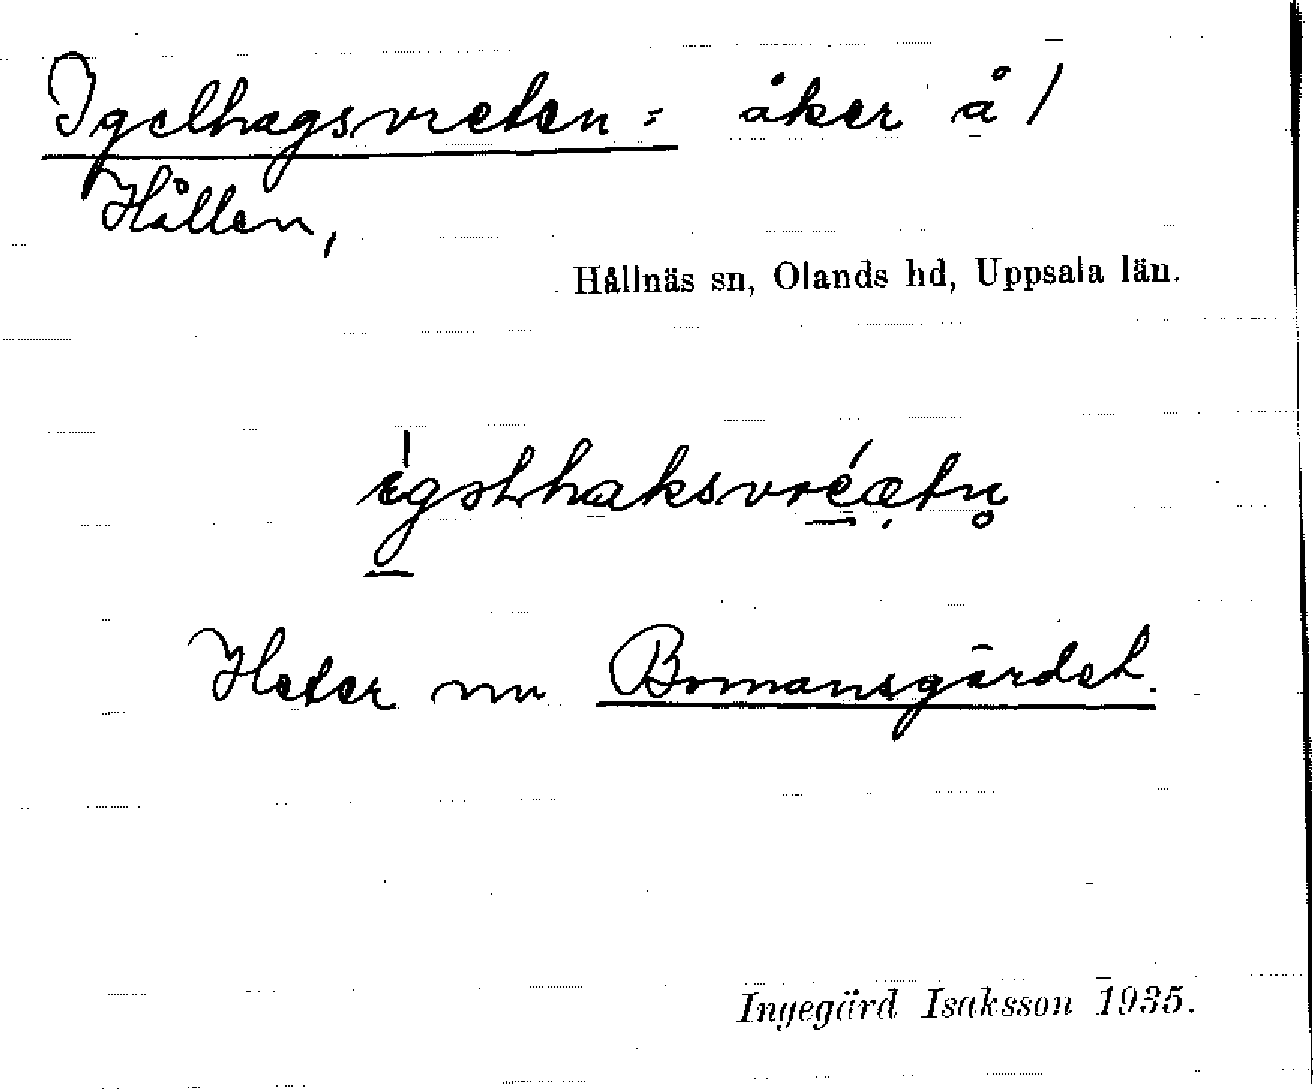 Igelhagsvreten = åker å /
Hållen,
Hållnäs sn, Olands hd, Uppsala län.
Heter nu Bomansgärdet.
Ingegärd Isaksson 1935.